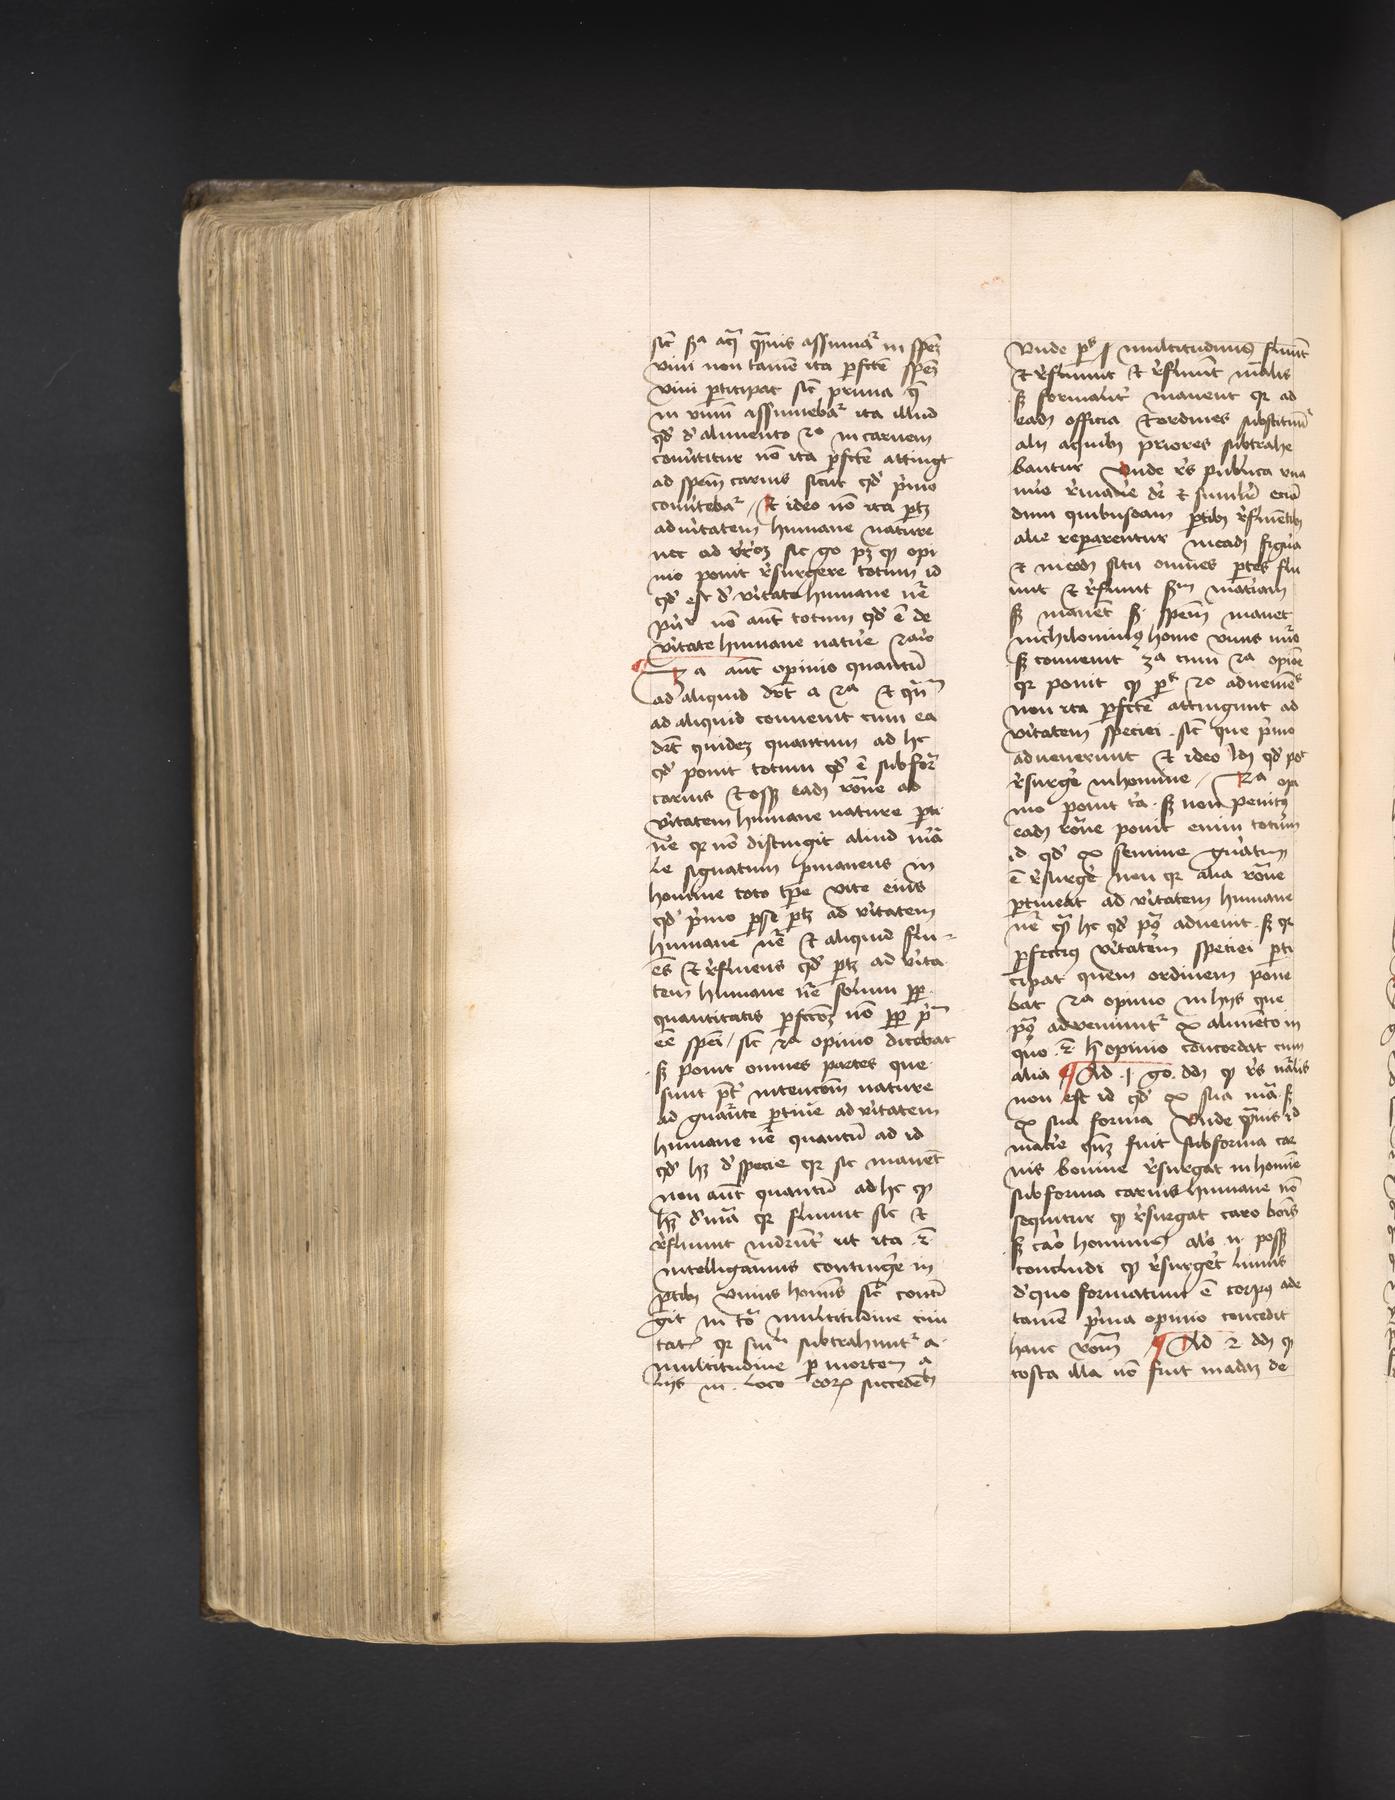 sic̄ s̄a aq̄ q̄̄uis assumat᷑ in spē̄z
vini non tamē ita ꝑfctē spē̄z
vini ꝑticipat sic̄ prima q̄
in vinū assumebat᷑ ita illud
qd̓ d̓ alimento 2o in carnem
conv̓titur nō ita ꝑfctē attingt
ad spēm carnis sicut qd̓ p̓mo
conv̓tebat᷑ / Et ideo nō ita ꝑtꝫ
ad v̓itatem humane nature
nec ad r̓r̓oꝫ sic go pꝫ ꝙ opi
nio ponit r̓surgere totum id
qd̓ est d̓ v̓itate humane nr̄e
nō aut̄ totum qd̓ ē de
v̓itate humane nature
3a aut̄ opinio quantū
ad aliquid drt̄ a 2a Et q̄n̄
ad aliquid convenit cum ea
drt̄ quidez quantum ad hc
qd̓ ponit totum qd̓ ē sub for̄
carnis et oss̄ eadꝫ rōne ad
v̓itatem humane nature ꝑti
ne qr nō distingit aliud ma
le signatum ꝑmanens in
homine toto tp̄e vite eius
qd̓ p̓mo ꝑ se ꝑtꝫ ad v̓itatem
humane nr̄e Et aliquid flu
ēs Et r̓fluens qd̓ ꝑtꝫ ad v̓ita
tem humane nr̄e solum ꝓp
quantitatis ꝑfccōꝫ nō ꝓp p̓m
eē spēi / sic̄ 2a opinio dicebat
sꝫ ponit omnes partes que
sunt p̄t intencōm nature
ad gn̄ar̓nte ꝑtine ad v̓itatem
humane nr̄e quantū ad id
qd̓ hꝫ d̓ specie qr sic manēt
non aut̄ quantū ad hc ꝙ
hn̄t d̓ mā qr fluunt sic Et
r̓fluunt indrn̄t᷑ ut ita ·ē·
intelligamus conting̓e in
ꝑtibꝫ vnius homīs sic̄ conti
git in to᷑ multitudine ciui
tat᷑ qr sin̓li subtrahunt᷑ a
multitudine ꝑ mortem a
lijs in loco eorꝫ succeden̄
Vnde ꝑtes multitudinis fluūt
Et r̓fluunt Et r̓fluūt mālis
sꝫ formalit᷑ manent qr ad
eadꝫ officia Et ordines substituūt᷑
alij a quibꝫ priores subtrahe
bantur Vnde r̓s publica vna
nu̓o r̓man̓e dr̄ Et simil̓r eciā
dum quibusdam ꝑtibꝫ r̓fluentibꝫ
alie reparentur in eadꝫ figura
Et in eodꝫ situ omnes ꝑtes flu
unt Et r̓fluunt s̄m mat̓iam
sꝫ manēt s̄ spēm manet
nichilominꝰ homo vnus nu̓o
sꝫ convenit 3a cum 2a opiōe
qr ponit ꝙ ꝑtes 2o advenien̄s
non ita ꝑfctē attingunt ad
v̓itatem speciei · sic̄ que p̓mo
advenerunt Et ideo idꝫ qd̓ pot
r̓surg̓e in homine / 2a opi
nio ponit 3a · sꝫ non penitꝰ
eadꝫ rōne ponit enim totum
id qd̓ ex semine gn̓atum
ē r̓surg̓e non qr alia rōne
ꝑtineat ad v̓itatem humane
nr̄e q̄ hc qd̓ pꝰ advenit · sꝫ qr
ꝑfectiꝰ v̓itatem speciei ꝑti
cipat quem ordinem pone
bat 2a opinio in hijs que
pꝰ adveniunt᷑ ex alimēto in
quo ·ē· h̄ opinio concordat cum
alia ¶ Ad ·1· go ·dꝫ ꝙ r̓s nālis
non est id qd̓ ex sua mā · sꝫ
ex sua forma Vnde q̄̄uis id
mat̓ie q̄ꝫ fuit sub forma car
nis bovine r̓surgat in homīe
sub forma carnis humane nō
sequitur ꝙ r̓surgat caro bovis
sꝫ caro hominis al̓s n̄ posset
concludi ꝙ r̓surg̓et limus
d̓ quo formatum ē corpꝰ ade
tamē p̓ma opinio concedit
hanc rōm̄ / ¶ Ad 2 dꝫ ꝙ
costa illa nō fuit in adaꝫ de